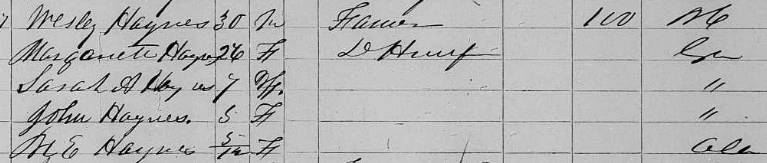 Wesley Haynes 30 M Farmer 100 N C
Margarett Haynes 26 F D Hous Geo
Sarah A Haynes 7 "
John Haynes 5 F "
M E Haynes 5/12 F Ala